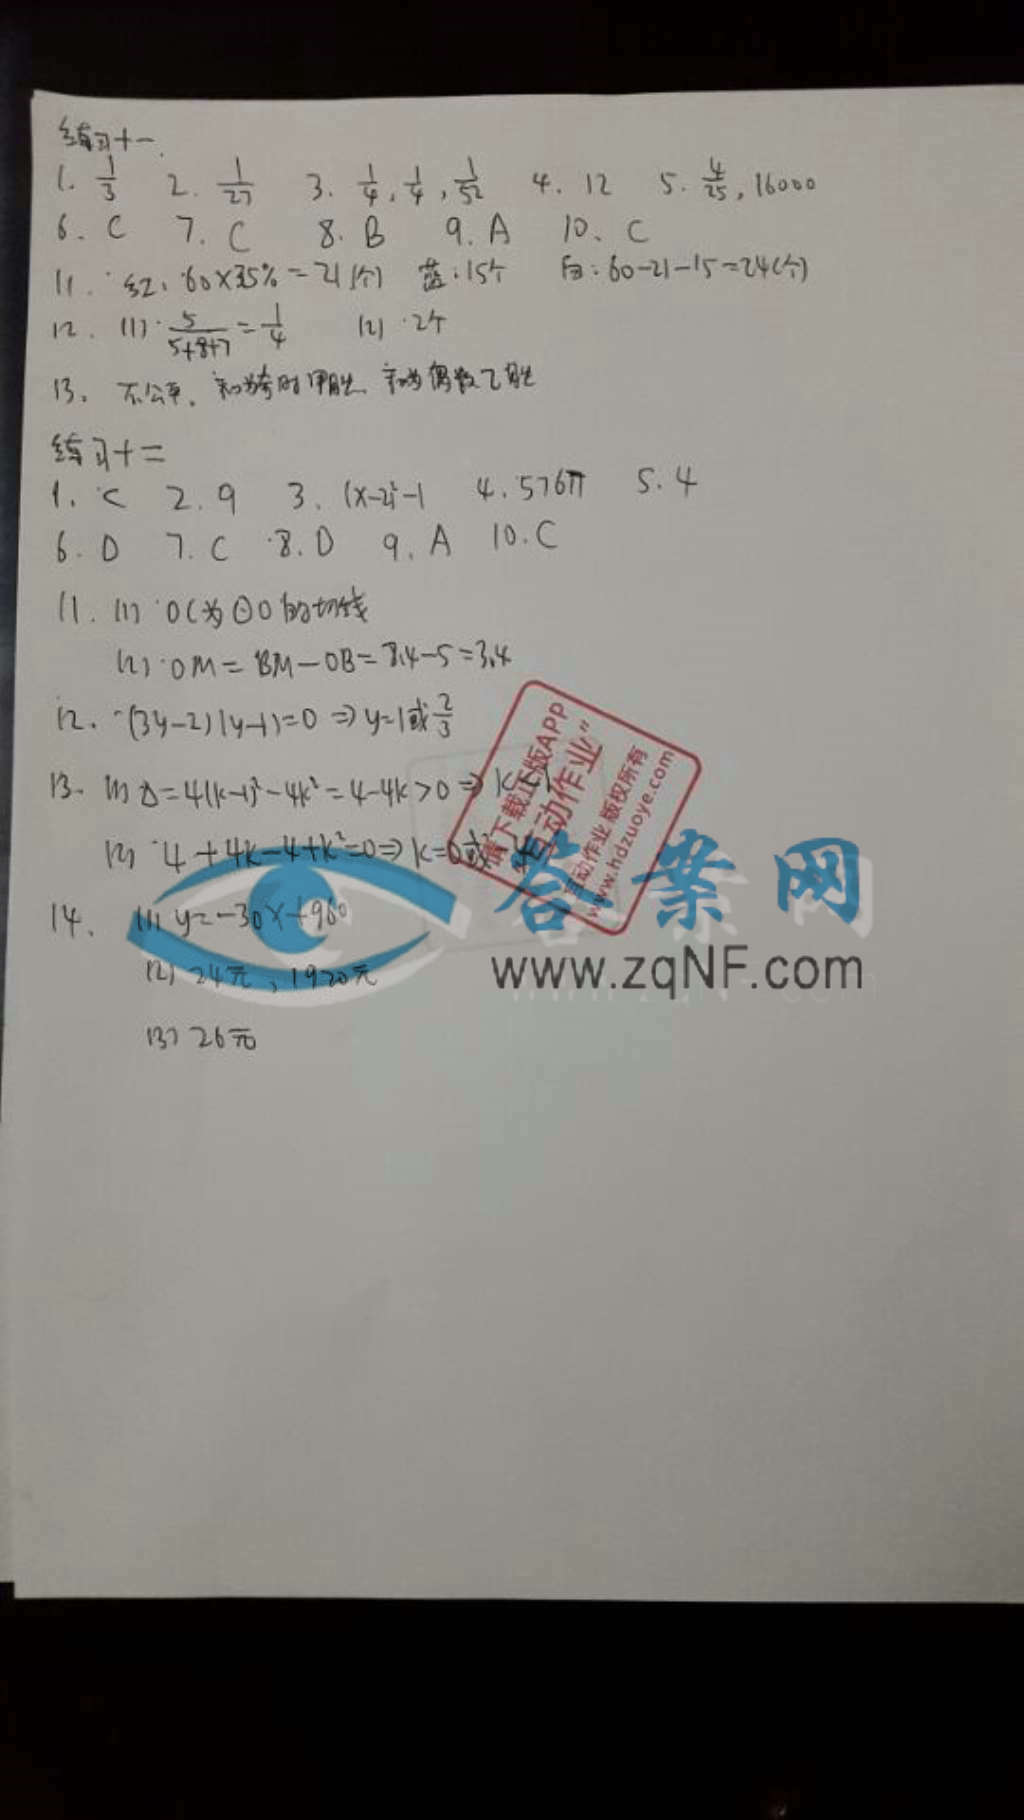 练习十一.
1. 1/3 2. 1/27 3. 1/4, 1/4, 1/52 4. 12 5. 4/25, 16000
6. C 7. C 8. B 9. A 10. C
11. 红: 60×35%=21(个) 蓝:15个 白:60-21-15=24(个)
12. (1) 5/(5+8+7)=1/4 (2) 2个
13. 不公平. 和为奇时甲胜 和为偶数乙胜
练习十二
1. < 2. 9 3. (x-2)²-1 4. 576π 5. 4
6. D 7. C 8. D 9. A 10. C
11. (1) OC为⊙O的切线
(2) OM=BM-OB=8.4-5=3.4
12. (3y-2)(y-1)=0 ⇒ y=1或2/3
13. (1) Δ=4(k-1)²-4k²=4-4k>0 ⇒ k<1
(2) 4+4k-4+k²=0 ⇒ k=0或
14. (1) y=-30x+960
(2) 24元, 1920元
(3) 26元
请下载正版APP
"互动作业"
互动作业 版权所有
www.hdzuoye.com
答案网
www.zqNF.com